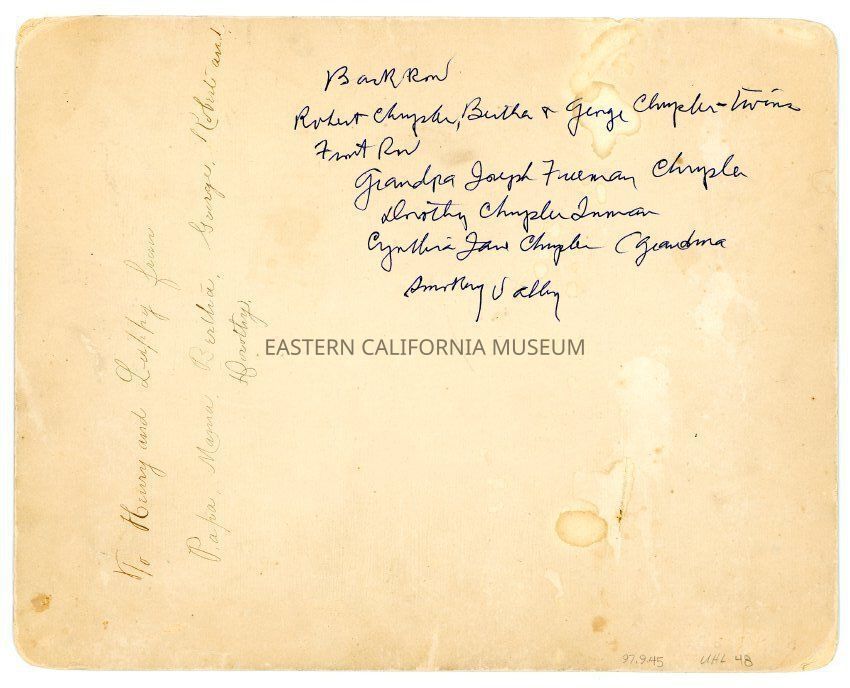 Back Row
Robert Chrysler, Bertha + George Chrysler - Twins
Front Row
Grandpa Joseph Freeman Chrysler
Dorothy Chrysler Inman
Cynthia Jane Chrysler (Grandma
Valley
EASTERN CALIFORNIA MUSEUM
To Henry and from
Papa, Mama, Bertha, George, Robert and
Dorothy.
97.9.45 UHL 48